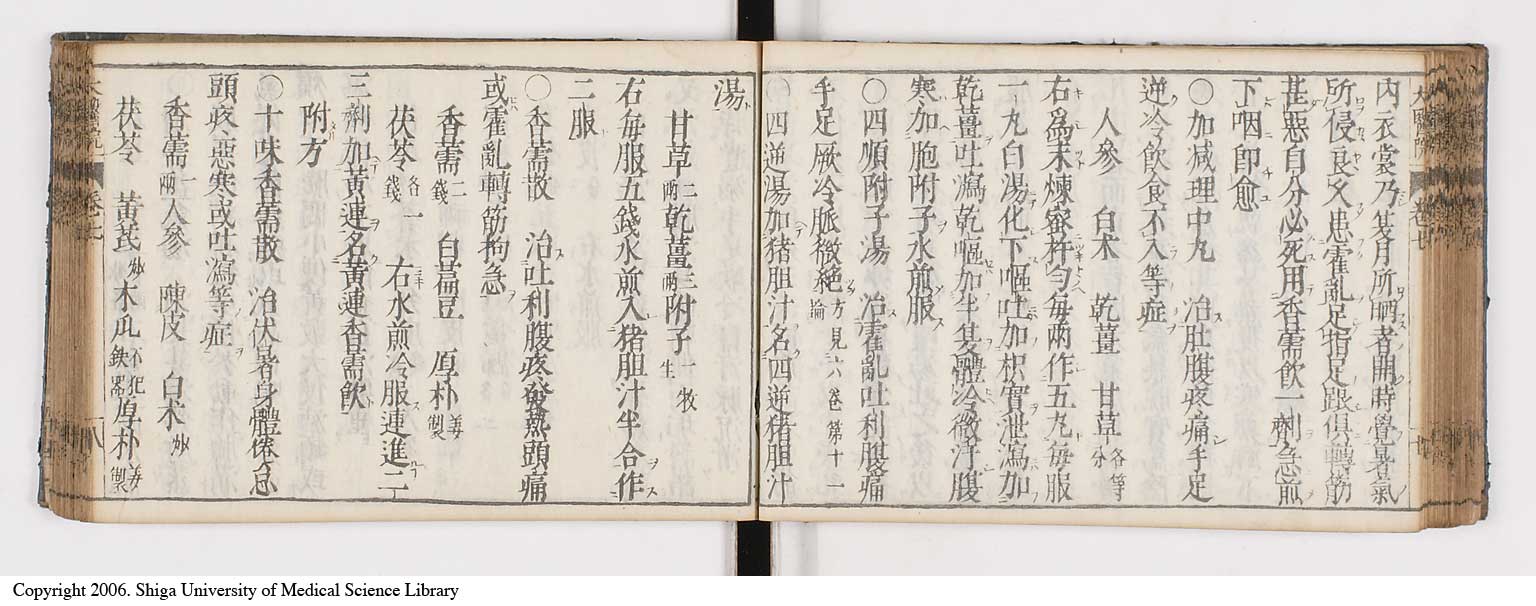 内衣裳乃某月所晒者開時覺暑氣
所侵良久患霍亂足指足跟俱轉筋
甚惡自分必死用香薷飲一劑急煎
下咽即愈
〇加减理中丸 治肚腹疼痛手足
逆冷飲食不入等症
人參 白朮 乾薑 甘草各等分
右爲末煉蜜杵勻每兩作五丸每服
一丸白湯化下嘔吐加枳實泄瀉加
乾薑吐瀉乾嘔加半其體冷微汗腹
寒加炮附子水煎服
〇四順附子湯 治霍亂吐利腹痛
手足厥冷脈微絶方見六卷第十一論
四逆湯加猪胆汁名四逆猪胆汁
湯
甘草二兩 乾薑三兩 附子一牧生
右每服五錢水煎入猪胆汁半合作
二服
〇香薷散 治吐利腹疼發熱頭痛
或霍亂轉筋拘急
香薷二錢 白藊豆 厚朴姜製
茯苓各一錢 右水煎冷服連進二
三劑加黄連名黄連香薷飲
附方
〇十味香薷散 治伏暑身體倦怠
頭疼惡寒或吐瀉等症
香薷一兩 人參 陳皮 白朮炒
茯苓 黄芪炒 木瓜不犯鉄器 厚朴姜製
Copyright 2006. Shiga University of Medical Science Library